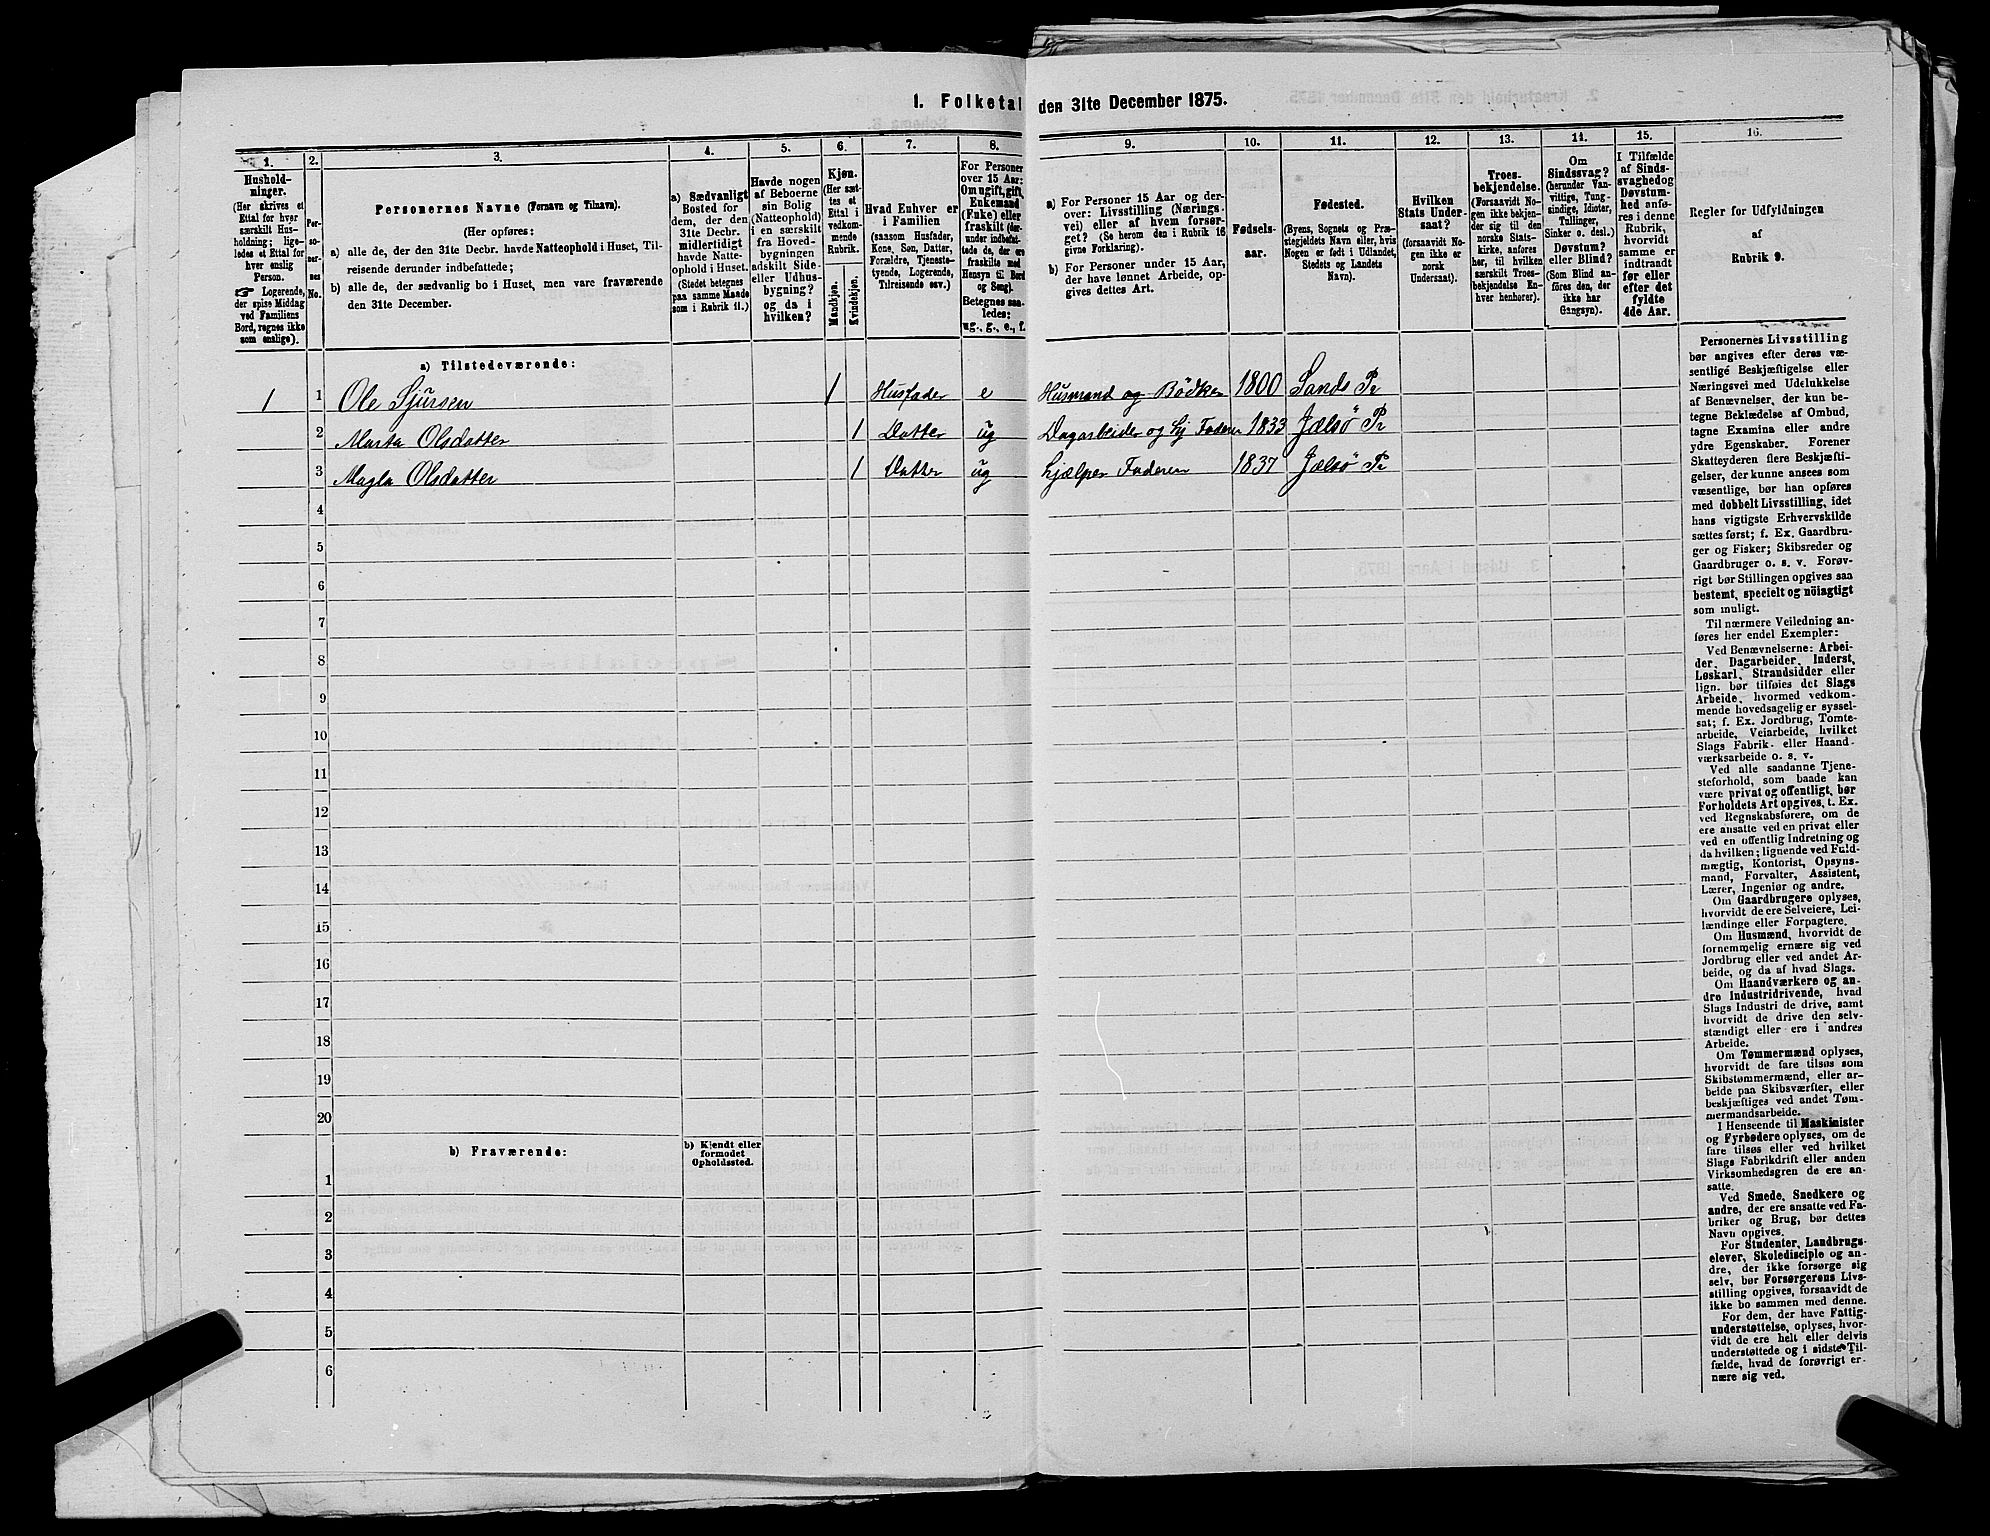 1. Folketal den 31te December 1875.
1.
2.
3.
4.
5.
6.
7.
8.
9.
10.
11.
12.
13.
14.
15.
16.
Hushold-
ninger.
(Her skrives et
Ettal for hver
særskilt Hus-
holdning; lige-
ledes et Ettal for
hver enslig
Person.
☞ Logerende,
der spise Middag
ved Familiens
Bord, regnes ikke
som enslige).
Per-
so-
ner-
nes
No.
Personernes Navne (Fornavn og Tilnavn).
(Her opføres:
a) alle de, der den 31te Decbr. havde Natteophold i Huset, Til-
reisende derunder indbefattede;
b) alle de, der sædvanlig bo i Huset, men vare fraværende
den 31te December.
a) Sædvanligt
Bosted for
dem, der den
31te Decbr.
midlertidigt
havde Natte-
ophold i Huset.
(Stedet betegnes
paa samme Maade
som i Rubrik 11.)
Havde nogen
af Beboerne
sin Bolig
(Natteophold)
i en særskilt
fra Hoved-
bygningen
adskilt Side-
eller Udhus-
bygning?
og da i
hvilken?
Kjøn.
(Her sæt-
tes et
Ettal i
vedkom-
mende
Rubrik.
Mandkjøn.
Kvindekjøn.
Hvad Enhver er
i Familien
(saasom Husfader,
Kone, Søn, Datter,
Forældre, Tjeneste-
tyende, Logerende,
Tilreisende osv.)
For Personer
over 15 Aar:
Om ugift, gift,
Enkemand
(Enke) eller
fraskilt (der-
under indbefat-
tede de, der ere
fraskilte med
Hensyn til Bord
og Seng).
Betegnes saa-
ledes:
ug., g., e., f.
a) For Personer 15 Aar og der-
over: Livsstilling (Nærings-
vei) eller af hvem forsør-
get? (Se herom den i Rubrik 16
givne Forklaring).
b) For Personer under 15 Aar,
der have lønnet Arbeide, op-
gives dettes Art.
Fødsels-
aar.
Fødested.
(Byens, Sognets og Præ-
stegjeldets Navn eller, hvis
Nogen er født i Udlandet,
Stedets og Landets
Navn).
Hvilken
Stats Under-
saat?
(forsaavidt No-
gen ikke er
norsk
Undersaat).
Troes-
bekjendelse.
(Forsaavidt No-
gen ikke bekjen-
der sig til den
norske Stats-
kirke, anføres
her, til hvilken
særskilt Troes-
bekjendelse En-
hver henhører).
Om
Sindssvag?
(herunder Van-
vittige, Tung-
sindige, Idioter,
Tullinger,
Sinker o. desl.)
Døvstum?
eller Blind?
(Som Blind an-
føres den, der
ikke har
Gangsyn).
I Tilfælde
af Sinds-
svaghed og
Døvstum-
hed anfø-
res i denne
Rubrik,
hvorvidt
samme er
indtraadt
før eller
efter det
fyldte
4de Aar.
Regler for Udfyldningen
af
Rubrik 9.
a) Tilstedeværende:
1 1 Ole Sjursen 1 Husfader e Husmand og Bödker 1800 Sands Pr
2 Marta Olsdatter 1 Datter ug Dagarbeider og hj Faderen 1833 Jælsö Pr
3 Magla Olsdatter 1 Datter ug hjælper Faderen 1837 Jælsö Pr
4
5
6
7
8
9
10
11
12
13
14
15
16
17
18
19
20
b) Fraværende:
b) Kjendt eller
formodet
Opholdssted.
1
2
3
4
5
6
Personernes Livsstilling
bør angives efter deres væ-
sentlige Beskjæftigelse eller
Næringsvei med Udelukkelse
af Benævnelser, der kun be-
tegne Beklædelse af Ombud,
tagne Examina eller andre
ydre Egenskaber. Forener
Skatteyderen flere Beskjæfti-
gelser, der kunne ansees som
væsentlige, bør han opføres
med dobbelt Livsstilling, idet
hans vigtigste Erhvervskilde
sættes først; f. Ex. Gaardbru-
ger og Fisker; Skibsreder og
Gaardbruger o. s. v. Forøv-
rigt bør Stillingen opgives saa
bestemt, specielt og nöiagtigt
som muligt.
Til nærmere Veiledning an-
føres her endel Exempler:
Ved Benævnelserne: Arbei-
der, Dagarbeider, Inderst,
Løskarl, Strandsidder eller
lign. bør tilføies det Slags
Arbeide, hvormed vedkom-
mende hovedsagelig er syssel-
sat; f. Ex. Jordbrug, Tomte-
arbeide, Veiarbeide, hvilket
Slags Fabrik- eller Haand-
værksarbeide o. s. v.
Ved alle saadanne Tjene-
steforhold, som baade kan
være privat og offentligt, bør
Forholdets Art opgives, t. Ex.
ved Regnskabsførere, om de
ere ansatte ved en privat eller
ved en offentlig Indretning og
da hvilken; lignende ved Fuld-
mægtig, Kontorist, Opsyns-
mand, Forvalter, Assistent,
Lærer, Ingeniør og andre.
Om Gaardbrugere oplyses,
hvorvidt de ere Selveiere, Lei-
lændinge eller Forpagtere.
Om Husmænd, hvorvidt de
fornemmelig ernære sig ved
Jordbrug eller ved andet Ar-
beide, og da af hvad Slags.
Om Haandværkere og an-
dre Industridrivende, hvad
Slags Industri de drive, samt
hvorvidt de drive den selv-
stændigt eller ere i andres
Arbeide.
Om Tømmermænd oplyses,
hvorvidt de fare tilsøs som
Skibstømmermænd, eller ar-
beide paa Skibsværfter, eller
beskjæftiges ved andet Tøm-
mermandsarbeide.
I Henseende til Maskinister
og Fyrbødere oplyses, om de
fare tilsøs eller ved hvilket
Slags Fabrikdrift eller anden
Virksomhedsgren de ere an-
satte.
Ved Smede, Snedkere og
andre, der ere ansatte ved Fa-
briker og Brug, bør dettes
Navn opgives.
For Studenter, Landbrugs-
elever, Skoledisciple og an-
dre, der ikke forsørge sig
selv, bør Forsørgerens Livs-
stilling opgives, forsaavidt de
ikke bo sammen med denne.
For dem, der have Fattig-
understøttelse, oplyses, hvor-
vidt de ere helt eller delvis
understøttede og i sidste Til-
fælde, hvad de forøvrigt er-
nære sig ved.